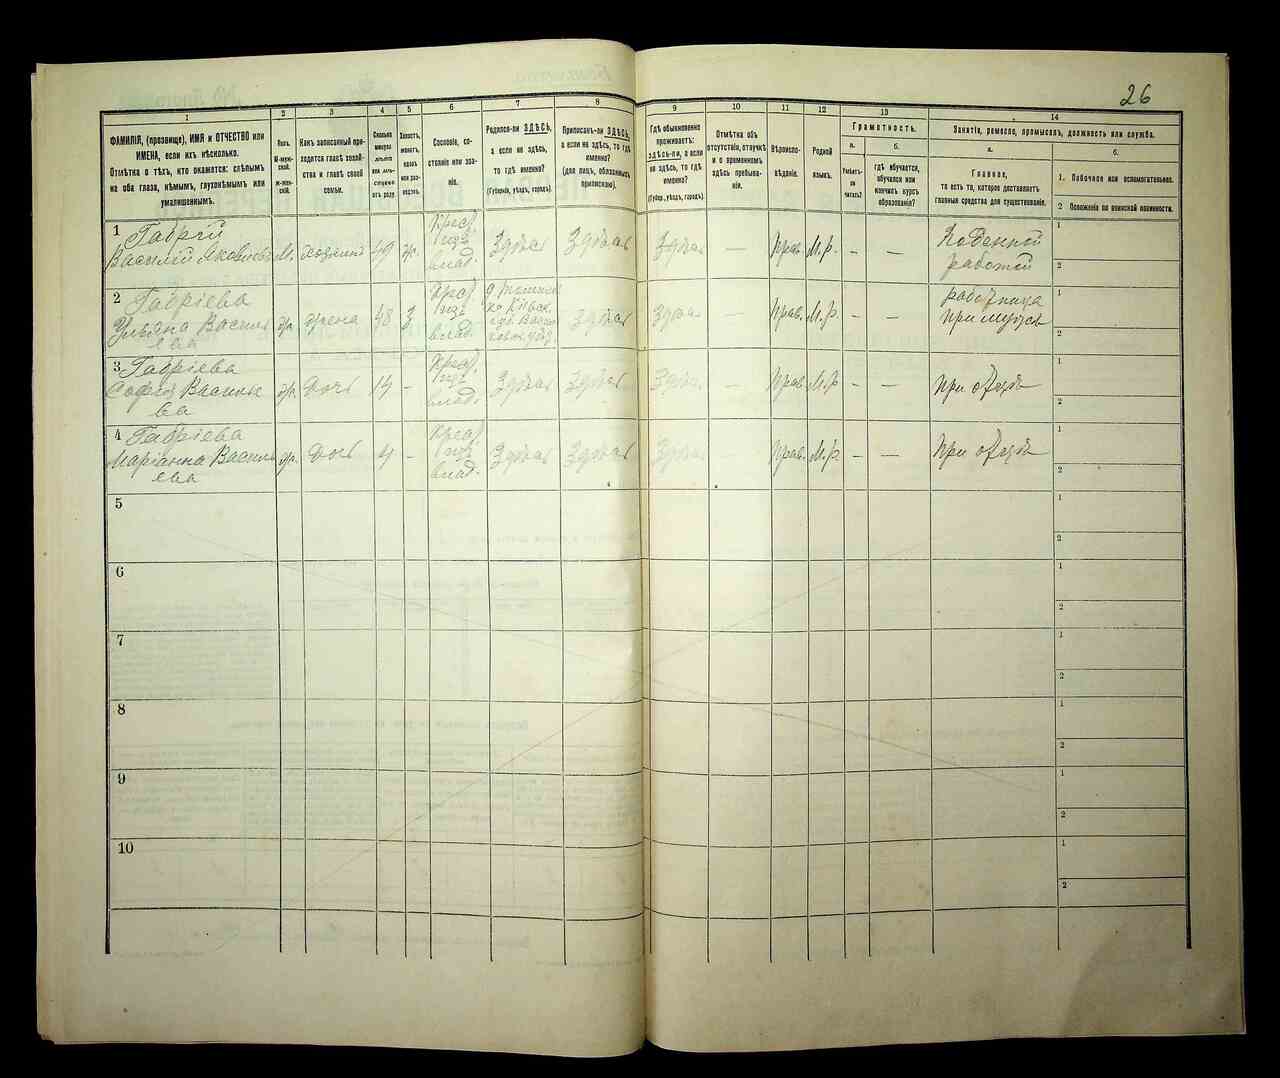 26
1
2
3
4
5
6
7
8
9
10
11
12
13
14
ФАМИЛІЯ, (прозвище), ИМЯ и ОТЧЕСТВО или
ИМЕНА, если ихъ нѣсколько.
Отмѣтка о тѣхъ, кто окажется: слѣпымъ
на оба глаза, нѣмымъ, глухонѣмымъ или
умалишеннымъ.
Полъ.
М-муж-
ской.
ж-жен-
скій.
Какъ записанный при-
ходится главѣ хозяй-
ства и главѣ своей
семьи.
Сколько
минуло
лѣтъ
отъ роду.
Холостъ,
женатъ,
вдовъ
или раз-
веденъ.
Сословіе, со-
стояніе или зва-
ніе.
Родился-ли ЗДѢСЬ,
а если не здѣсь,
то гдѣ именно?
(Губернія, уѣздъ, городъ).
Приписанъ-ли ЗДѢСЬ,
а если не здѣсь, то гдѣ
именно?
(для лицъ, обязанныхъ
припискою).
Гдѣ обыкновенно
проживаетъ:
ЗДѢСЬ-ЛИ, а если
не здѣсь, то гдѣ
именно?
(Губер., уѣздъ, городъ).
Отмѣтка объ
отсутствіи, отлучкѣ
и о временномъ
здѣсь пребыва-
ніи.
Вѣроиспо-
вѣданіе.
Родной
языкъ.
Грамотность.
а.
Умѣетъ-
ли
читать?
б.
гдѣ обучается,
обучался или
кончилъ курсъ
образованія?
Занятія, ремесло, промыселъ, должность или служба.
а.
Главное,
то есть то, которое доставляетъ
главныя средства для существованія.
б.
1. Побочное или вспомогательное.
2 Положеніе по воинской повинности.
1 Гаврій
Василій Яковлевъ М. хозяинъ 49 ж. Крест. изъ влад. Здѣсь Здѣсь Здѣсь — Прав. М.р. – — Поденной работой
2 Гавріева
Ульяна Василь
ева ж. жена 48 Крест. изъ влад. Здѣсь Здѣсь — Прав. М.р. – — работница при мужѣ
3 Гавріева
Софія Василь
ева ж. дочь 14 - Крест. изъ влад. Здѣсь Здѣсь Здѣсь — Прав. М.р – — При отцѣ
4 Гавріева
Маріанна Василь
ева ж. дочь 4 - Крест. изъ влад. Здѣсь Здѣсь Здѣсь — Прав. М.р – — При отцѣ
5
6
7
8
9
10